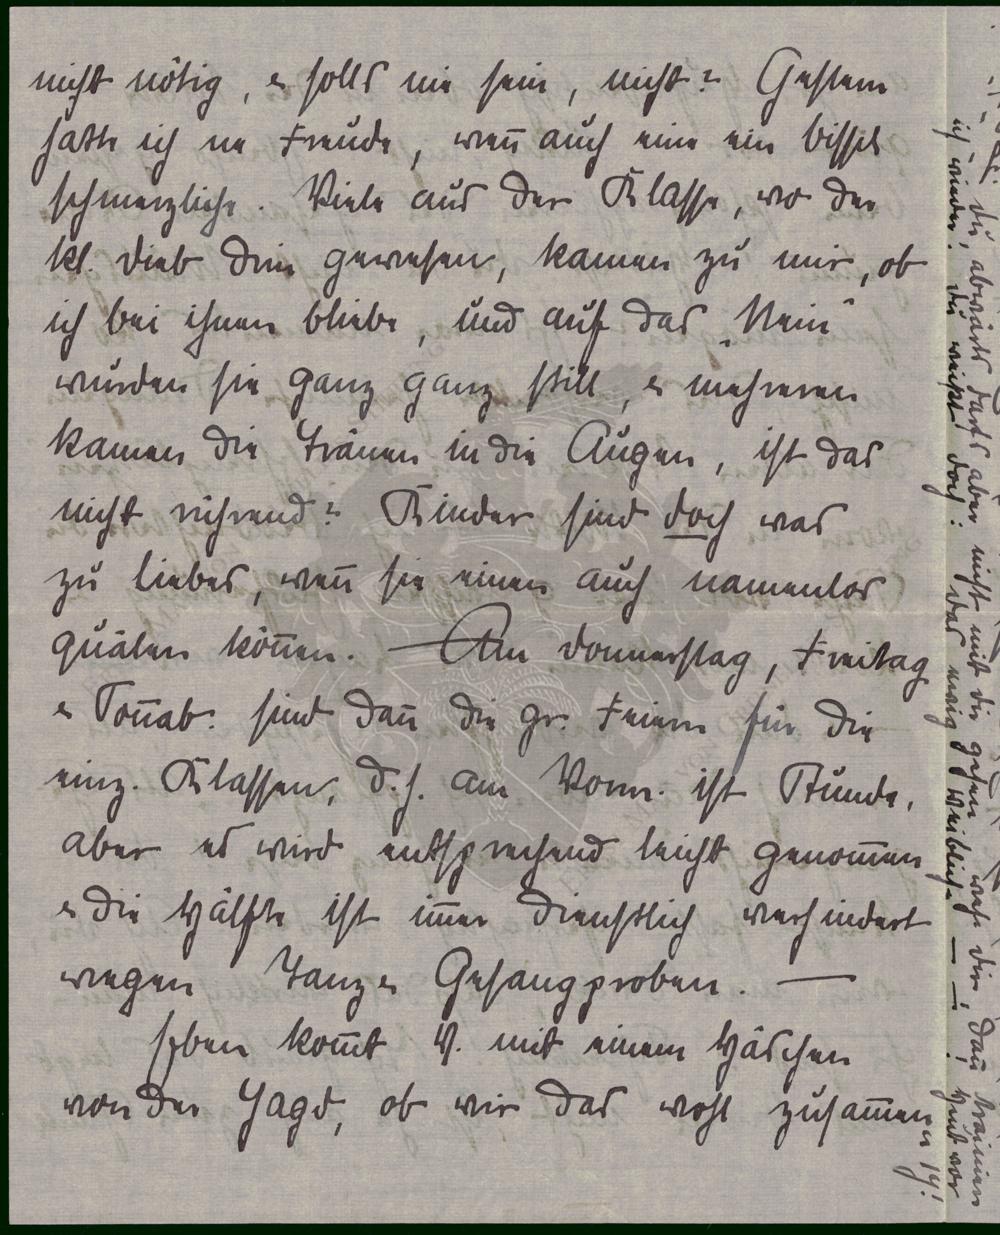 nicht nötig, & solls nie sein, nicht? Gestern
hatte ich ne Freude, wen̄ auch eine ein bissel
schmerzliche. Viele aus der Klasse, wo der
kl. Dieb drin gewesen, kamen zu mir, ob
ich bei ihnen bliebe, und auf das „Nein"
wurden sie ganz ganz still, & mehreren
kamen die Tränen in die Augen, ist das
nicht rührend? Kinder sind doch was
zu liebes, wen̄ sie einen auch namenlos
quälen kön̄en. — Am Donnerstag, Freitag
& Son̄ab. sind dan̄ die gr. Feiern für die
einz. Klassen, d.h. am Vorm. ist Stunde,
aber es wird entsprechend leicht genom̄en
& die Hälfte ist im̄er dienstlich verhindert
wegen Tanz & Gesangproben. —
Eben kom̄t V. mit einem Häschen
von der Jagd, ob wir das wohl zusam̄en
du, abwärts darfs aber nicht mit dir gehen, wehe dir, dan̄
ich wieder. Du weißt doch: das ewig Weibliche — — !